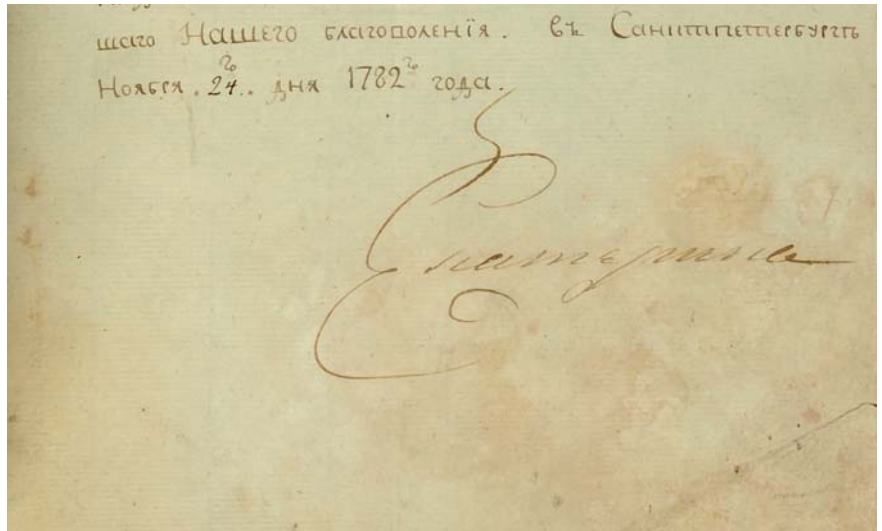 шаго Нашего благоволенїя. въ Санктпетербургѣ
Ноября. 24.го дня 1782го года.
Екатерина